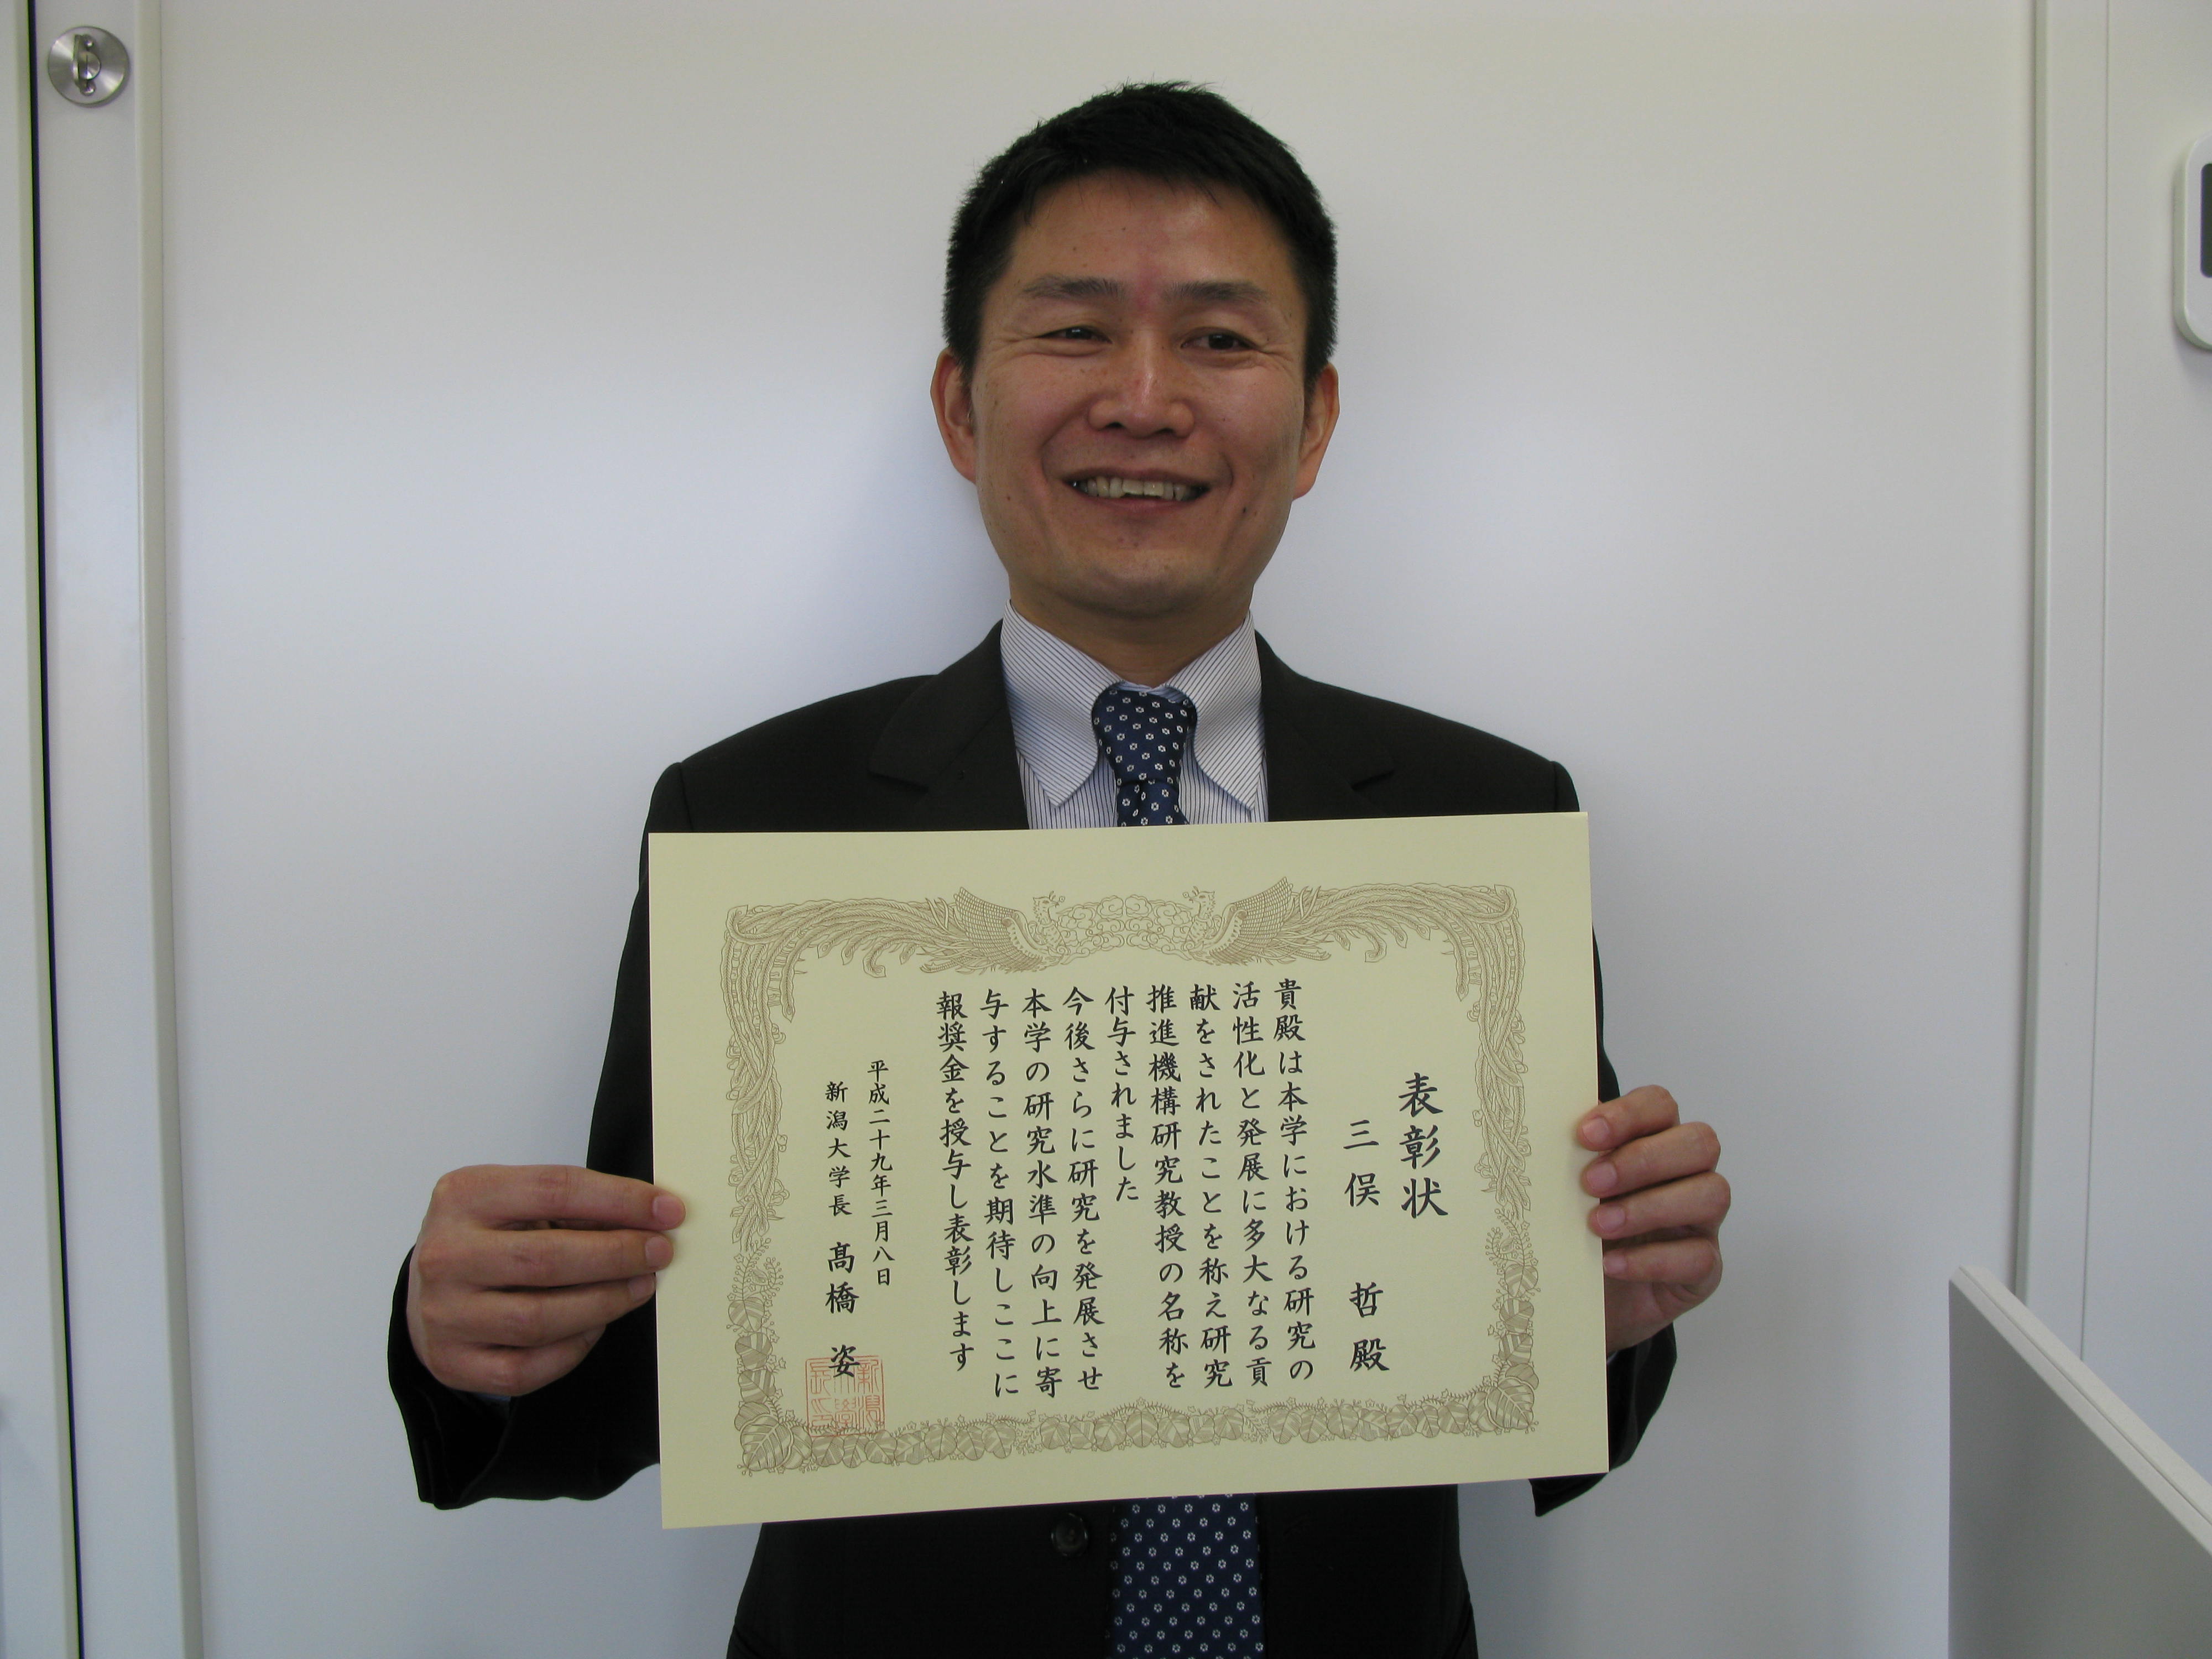 表彰状
三俣 哲 殿
貴殿は本学における研究の
活性化と発展に多大なる貢
献をされたことを称え研究
推進機構研究教授の名称を
付与されました
今後さらに研究を発展させ
本学の研究水準の向上に寄
与することを期待しここに
報奨金を授与し表彰します
平成二十九年三月八日
新潟大学長 髙橋 姿
新潟
大學
長印